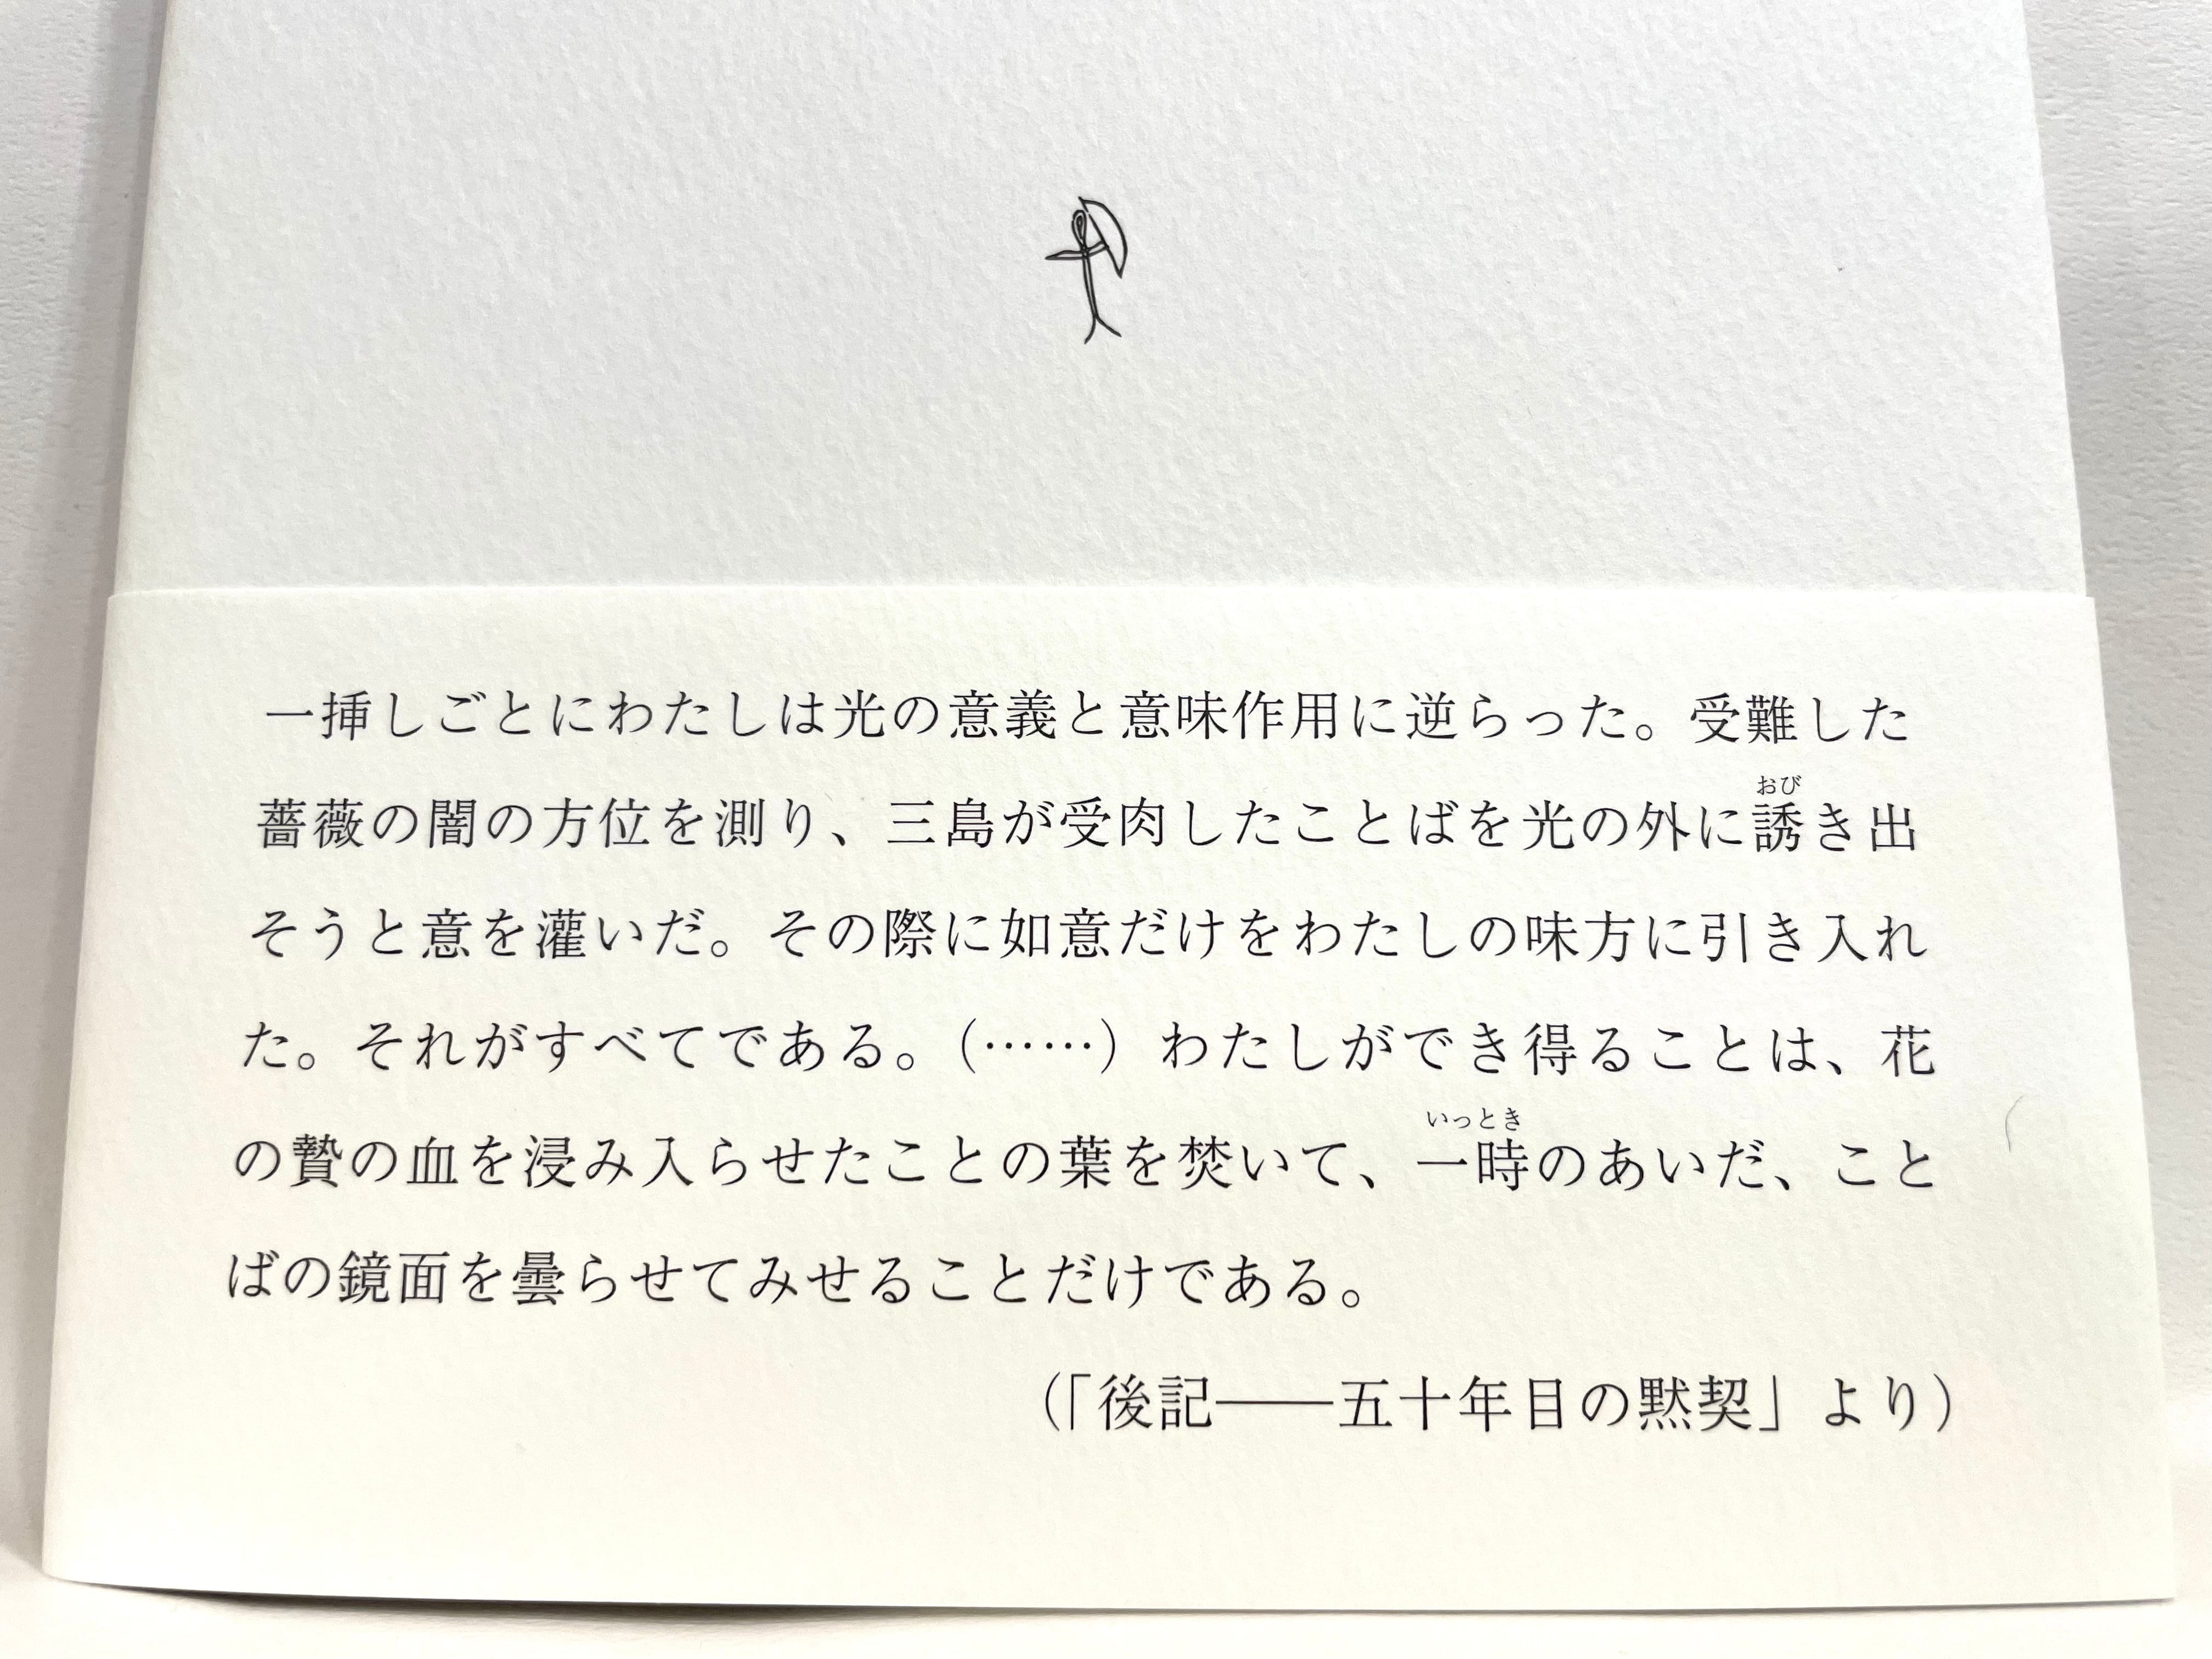 一挿しごとにわたしは光の意義と意味作用に逆らった。受難した
おび
薔薇の闇の方位を測り、三島が受肉したことばを光の外に誘き出
そうと意を灌いだ。その際に如意だけをわたしの味方に引き入れ
た。それがすべてである。(……) わたしができ得ることは、花
いっとき
の贄の血を浸み入らせたことの葉を焚いて、一時のあいだ、こと
ばの鏡面を曇らせてみせることだけである。
(「後記――五十年目の黙契」より)